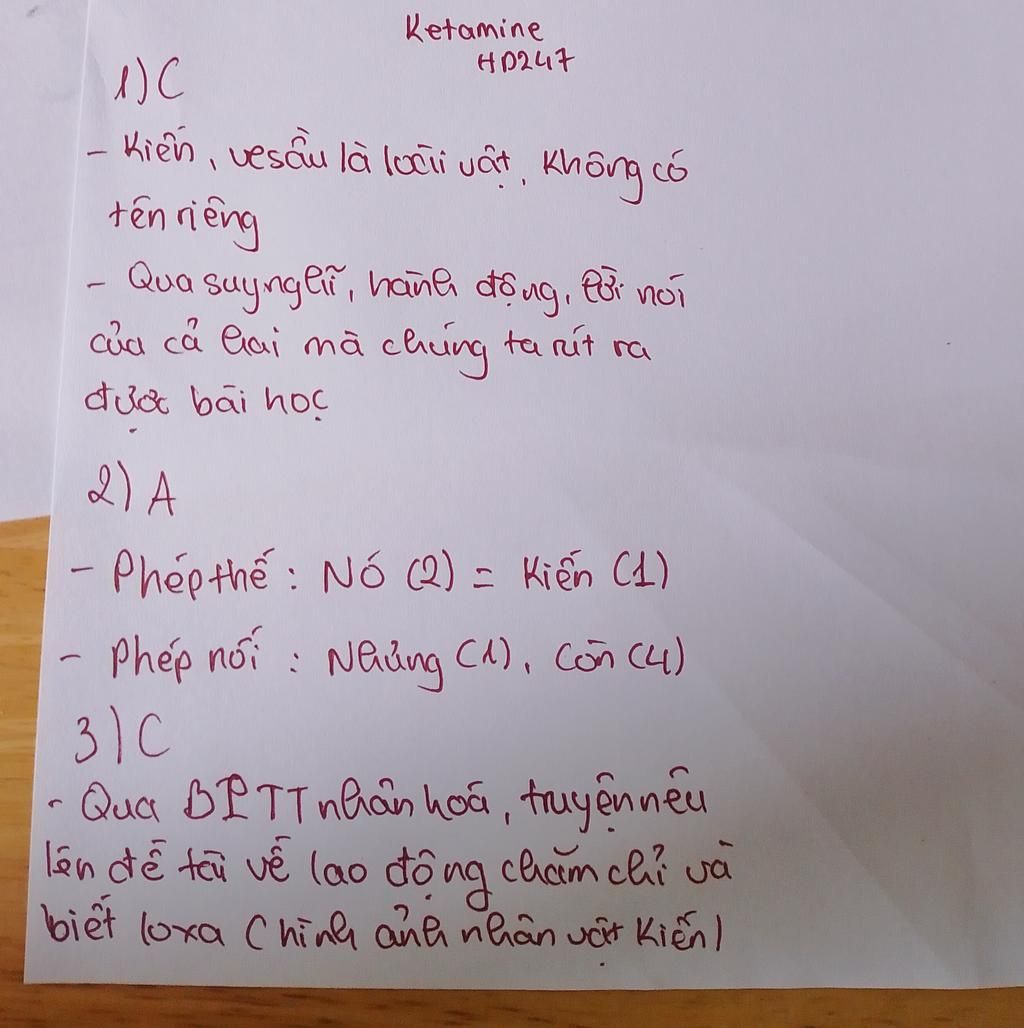 Ketamine
HD247
1) C
- Kiến, ve sầu là loài vật, không có
tên riêng
- Qua suy nghĩ, hành động, lời nói
của cả hai mà chúng ta rút ra
được bài học
2) A
- Phép thế : Nó (2) = Kiến (1)
- Phép nối : Nhưng (1), Còn (4)
3) C
- Qua BPTT nhân hoá, truyện nêu
lên đề tài về lao động chăm chỉ và
biết lo xa (hình ảnh nhân vật Kiến)